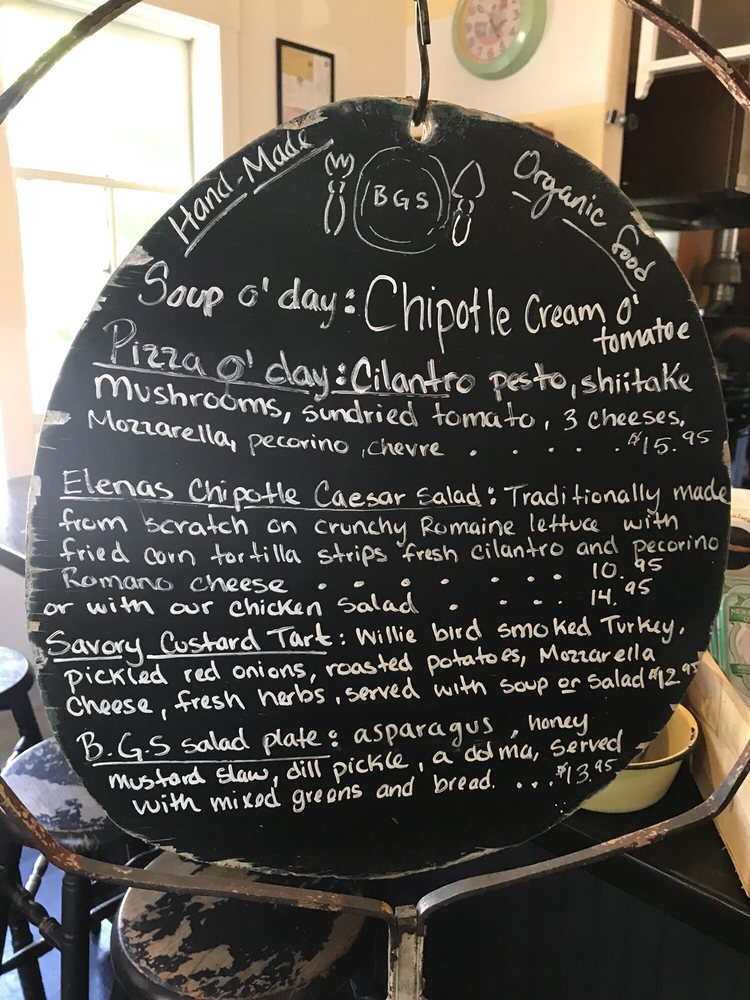 Hand-Made
BGS
Organic food
Soup o' day: Chipotle Cream o'
tomatoe
Pizza o' day: Cilantro pesto, shiitake
Mushrooms, sundried tomato, 3 cheeses,
Mozzarella, pecorino, chevre . . . . . $15.95
Elenas Chipotle Caesar Salad: Traditionally made
from scratch on crunchy Romaine lettuce with
fried corn tortilla strips fresh cilantro and pecorino
Romano cheese . . . . . . . 10.95
or with our chicken salad . . . . 14.95
Savory Custard Tart: Willie bird smoked Turkey,
pickled red onions, roasted potatoes, Mozzarella
cheese, fresh herbs, served with soup or salad $12.95
B.G.S salad plate: asparagus, honey
mustard slaw, dill pickle, a dolma, served
with mixed greens and bread. . . . $13.95